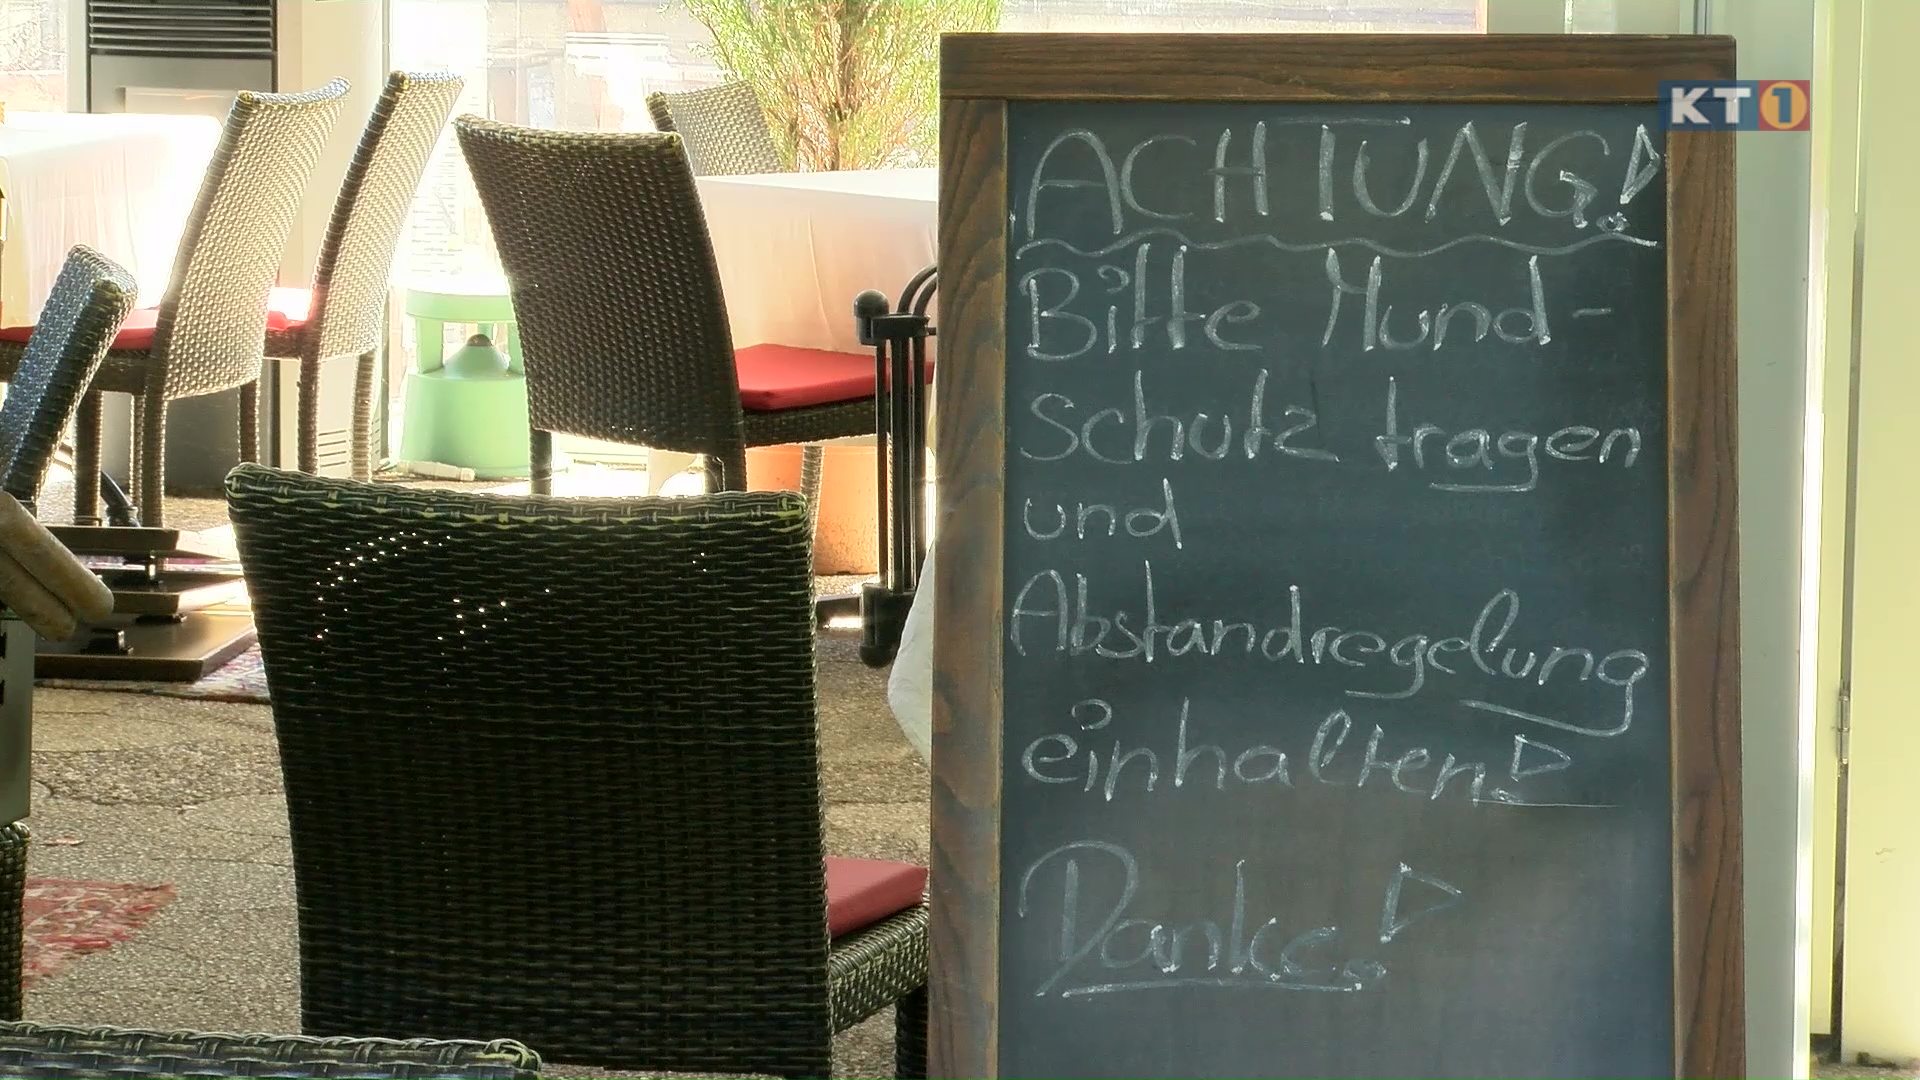 KT1
ACHTUNG!
Bitte Mund-
Schutz tragen
und
Abstandregelung
einhalten!
Danke!